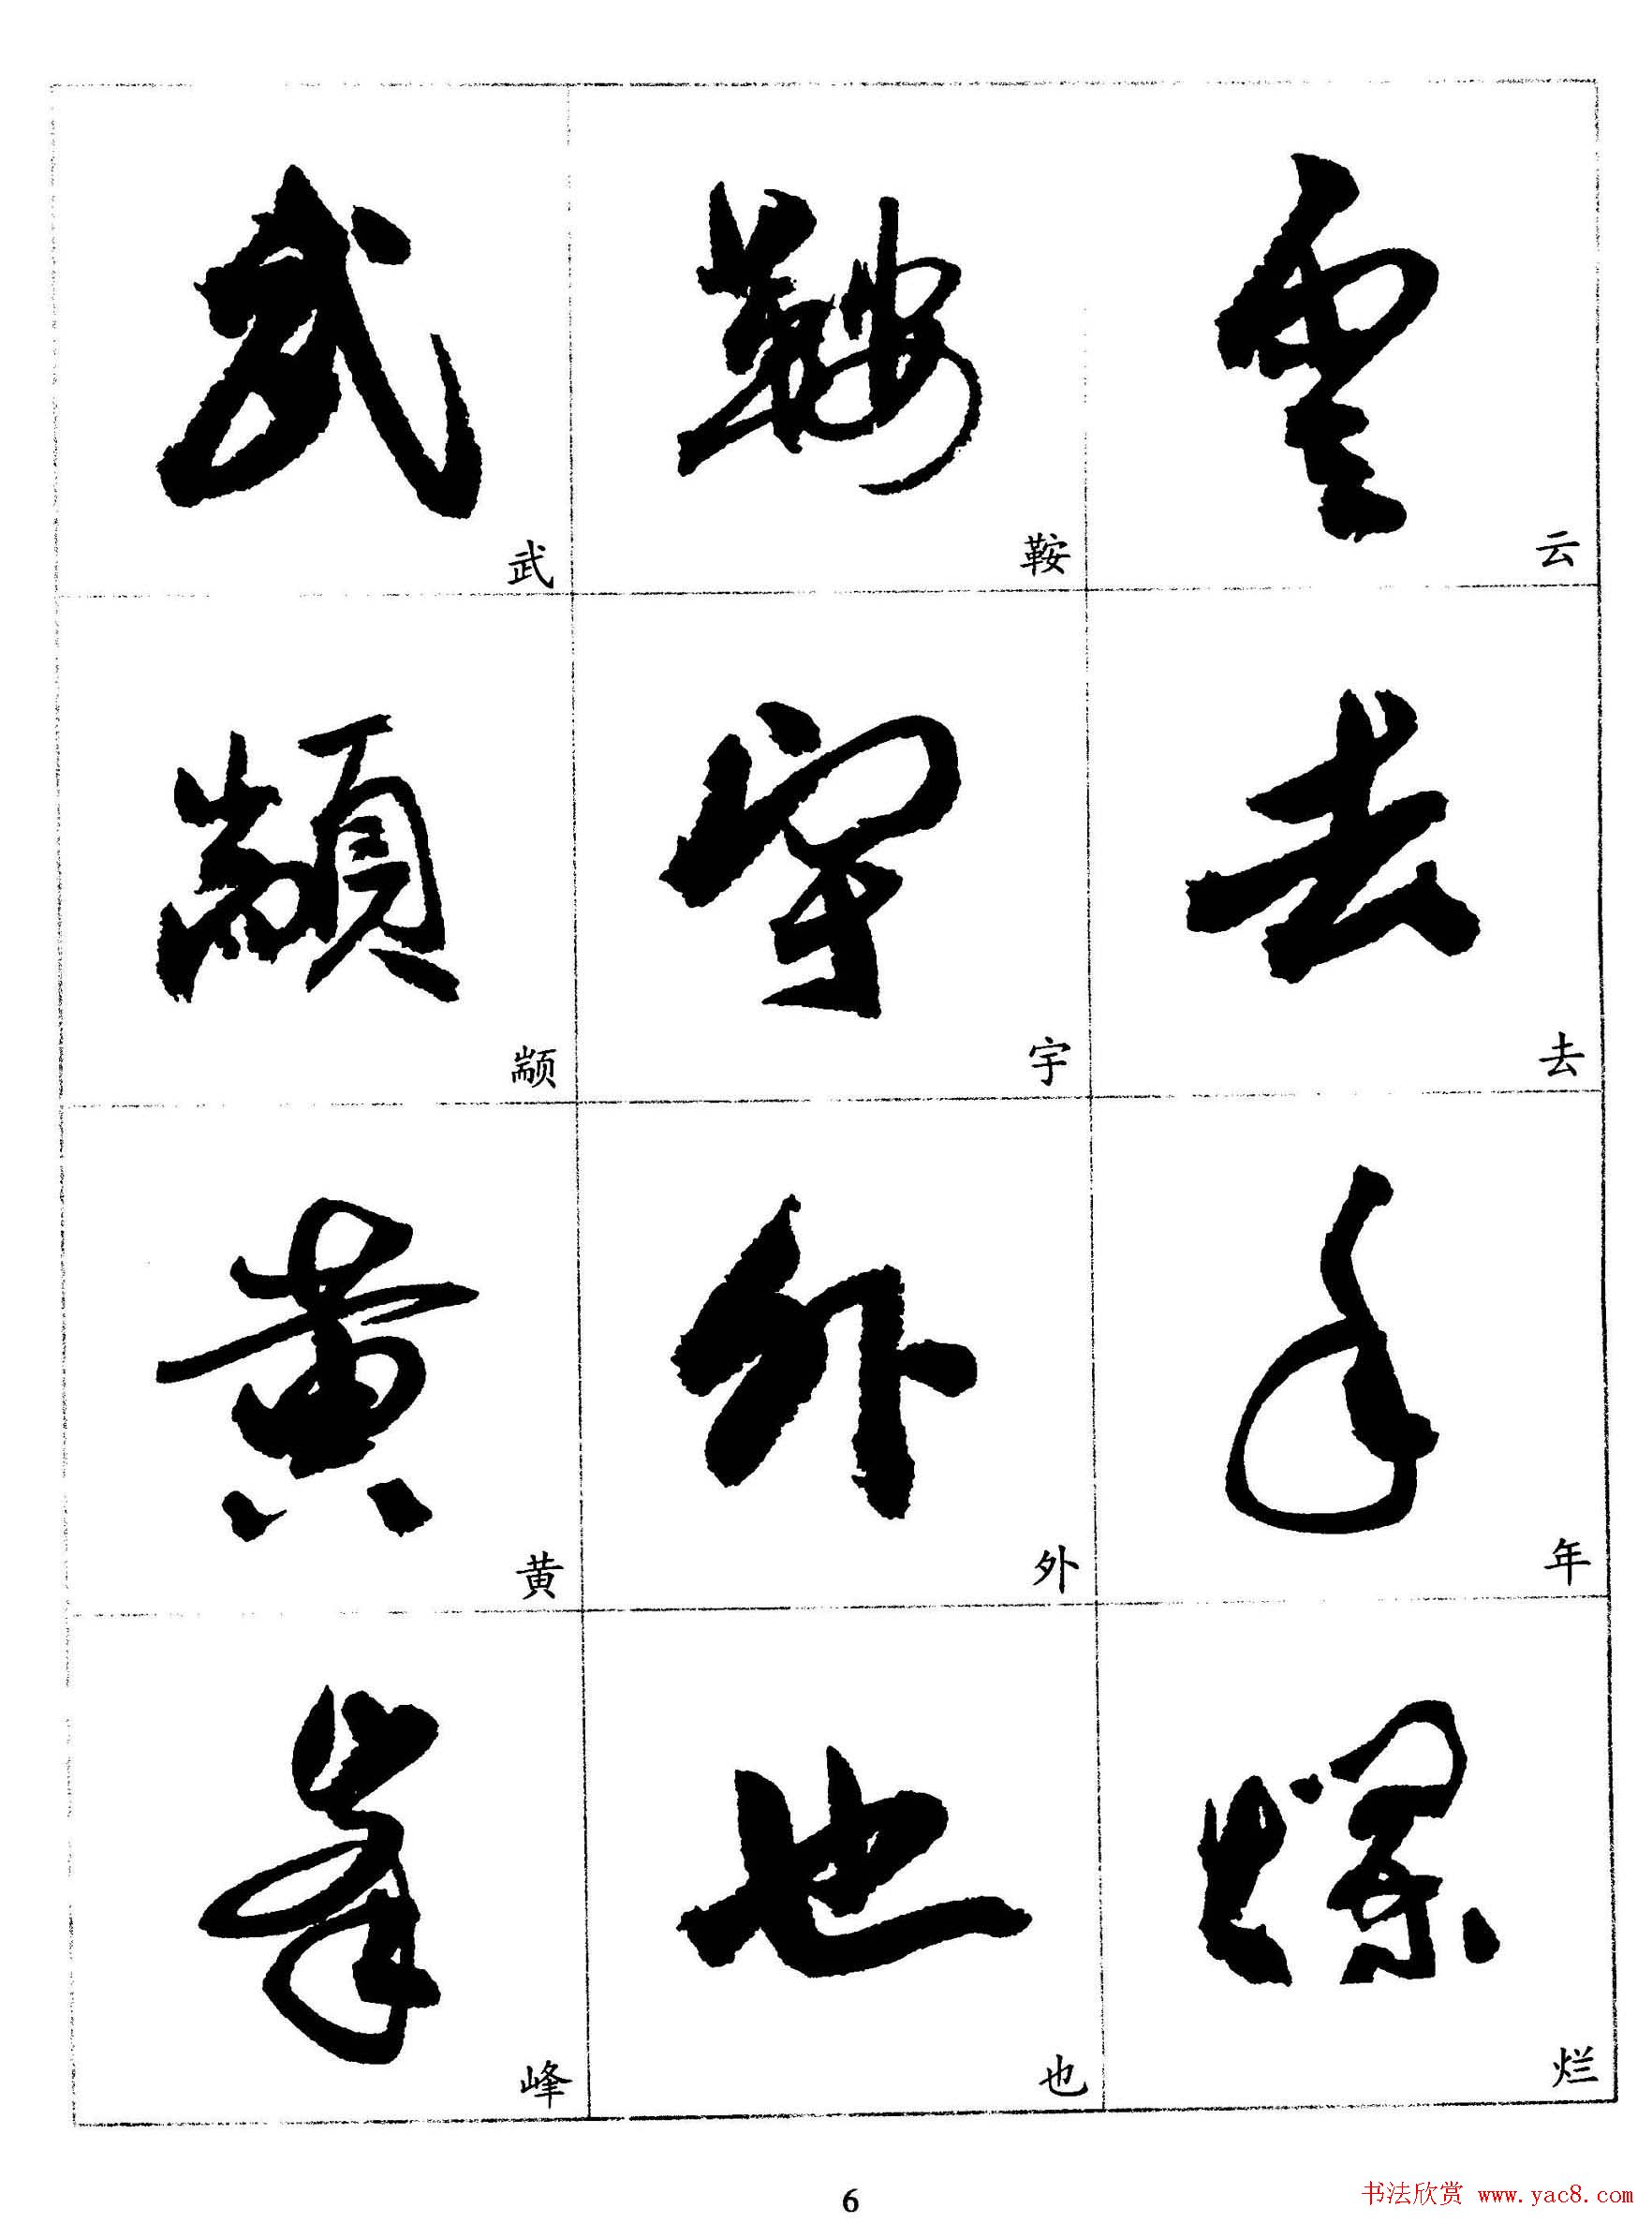 雲
云
去
去
年
年
爛
烂
鞍
鞍
宇
宇
外
外
也
也
武
武
顓
颛
黄
黄
峯
峰
6
书法欣赏 www.yac8.com